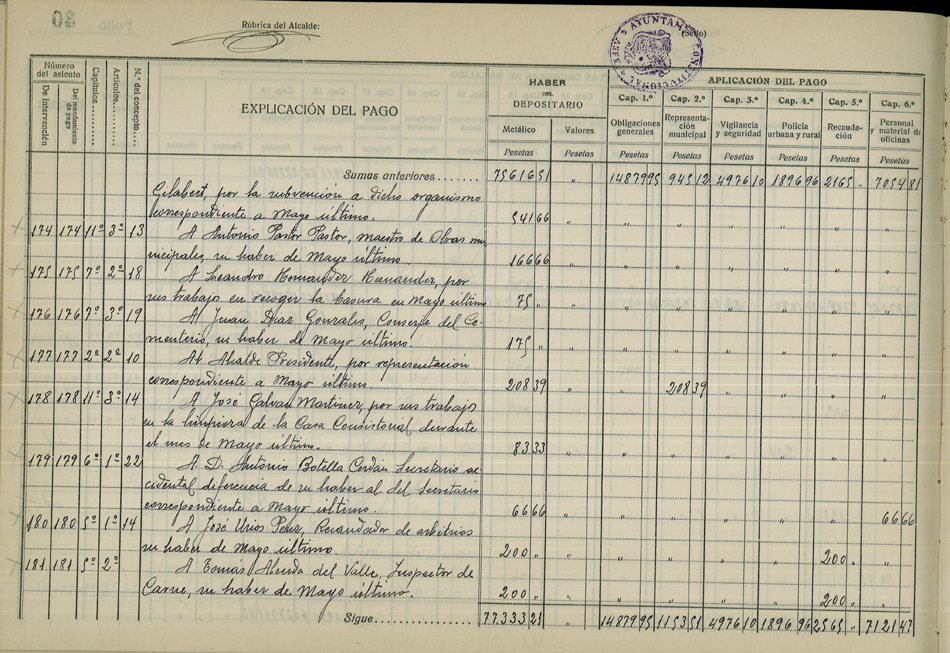 Rúbrica del Alcalde:
AYUNTAMIENTO CONSTITUCIONAL
(Sello)
Número del asiento
De Intervención
Del mandamiento de pago
Capítulos
Artículos
N.º del concepto
EXPLICACIÓN DEL PAGO
HABER DEL DEPOSITARIO
Metálico
Valores
Pesetas Pesetas
APLICACIÓN DEL PAGO
Cap. 1.º Cap. 2.º Cap. 3.º Cap. 4.º Cap. 5.º Cap. 6.º
Obligaciones generales
Representación municipal
Vigilancia y seguridad
Policía urbana y rural
Recaudación
Personal y material de oficinas
Pesetas Pesetas Pesetas Pesetas Pesetas Pesetas
Sumas anteriores....... 75616 51 " 14879 95 945 12 4976 10 1896 96 2165 " 7054 81
Gilabert, por la subvención a dicho organismo
correspondiente a Mayo último. 541 66 " " " " " " "
174 174 11º 3º 13 A Antonio Pastor Pastor, maestro de Obras mu
nicipales, su haber de Mayo último. 166 66 " " " " " " "
175 175 7º 2º 18 A Leandro Hernandez Hernandez, por
sus trabajo en recoger la basura en Mayo último 75 " " " " " " " "
176 176 7º 3º 19 A Juan Diaz Gonzales, Conserje del Ce-
menterio, su haber de Mayo último. 175 " " " " " " "
177 177 2º 2º 10 Al Alcalde Presidente, por representación
correspondiente a Mayo último. 208 39 " " 208 39 " " " "
178 178 11º 3º 14 A José Galvan Martinez, por sus trabajo
en la limpieza de la Casa Consistorial durante
el mes de Mayo último. 83 33 " " " " " " "
179 179 6º 1º 22 A D. Antonio Botella Cerdán Secretario ac-
cidental diferencia de su haber al del Secretario
correspondiente a Mayo último. 66 66 " " " " " " 66 66
180 180 5º 1º 14 A José Urios Perez, Recaudador de arbitrios
su haber de Mayo último. 200 " " " " " " 200 " "
181 181 5º 2º A Tomás del Valle, Inspector de
Carne, su haber de Mayo último. 200 " " " " " " 200 " "
Sigue................ 77333 21 " 14879 95 1153 51 4976 10 1896 96 2565 " 7121 47